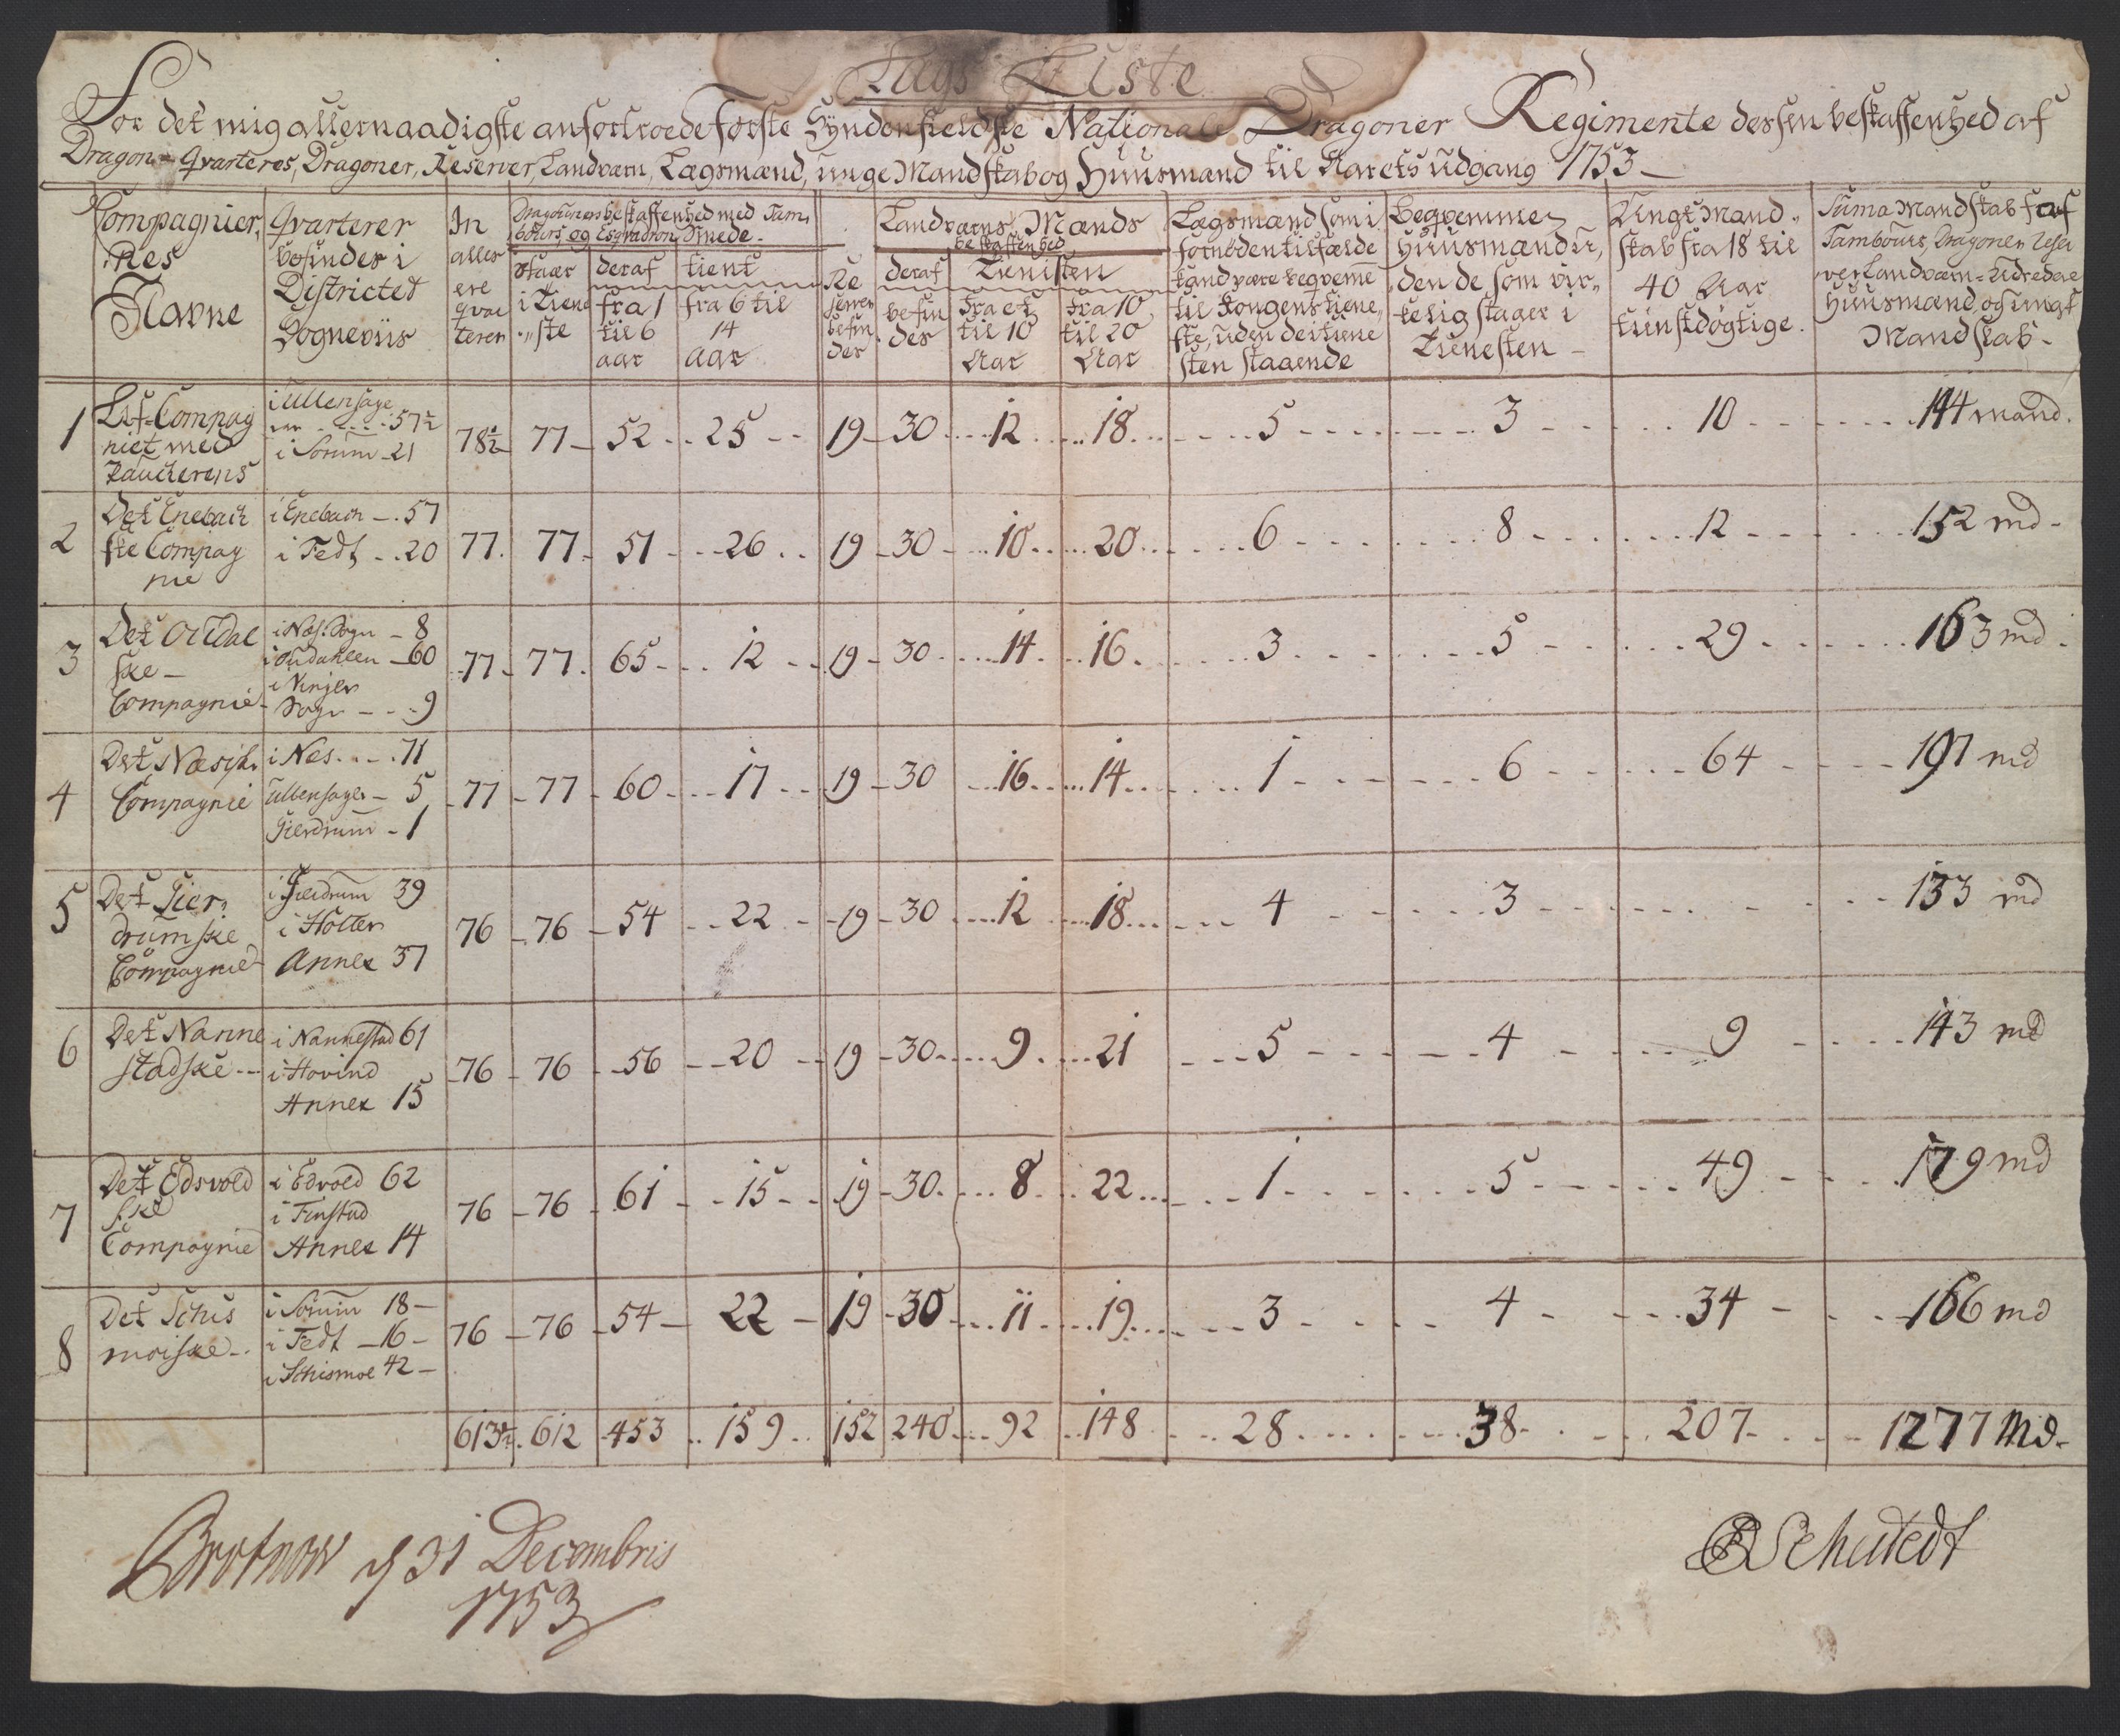 Lags Liste
For det mig allernaadigste anfortroede Første Syndenfieldske Nationale Dragoner Regimente dessen beskaffenhed af
Dragon-Qvarteres, Dragoner, Reserver, Landværn, Lægsmænd, unge Mandskab og Huusmænd til Aarets udgang 1753
Compagnier,
nes
Navne
Qvarterer
befindes i
Districtet
Sogneviis
In
alles
ere
qvar
terer
Dragouners beskaffenhed med Tam,
bours, og Esqvadron Smede.
staaer
i Tiene
ste
deraf
fra 1
til 6
aar
tient
fra 6 til
14
aar
Re
server
befin
des
Landværns Mænds
beskaffenhed
deraf
befin
des
Tienisten
fra et
til 10
Aar
fra 10
til 20
Aar
Lægsmænd som i
fornøden tilfælde
kand være beqveme
til Kongens tiene,
ste, uden de i tiene
sten staaende
Beqvemme
Huusmænd u,
den de som vir,
kelig staaer i
Tienesten
Ungt Mand,
skab fra 18 til
40 Aar
tienstdögtige.
Suma Mandskab saf
Tambours, Dragoner, Reser
ver Landværn-Udredere
Huusmænd og ungt
Mandskab.
1 Lif-Compag
niet med
Pauckerens
i Ullensage
er 57½
i Sorum 21
78½ 77 52 25 19 30 12 18 5 3 10 144 mand.
2 Det Enebach
ske Compag
nie
i Enebach 57
i Fedt 20
77. 77 51 26 19 30 10 20 6 8 12 152 md
3 Det Oudal
ske
Compagnie
i Næs. Sogn 8
i Oudahlen 60
i Vinger
Sogn 9
77 77 65 12 19 30 14 16 3 5 29 163 md
4 Det Næsisk.
Compagnie
i Nes 71
Ullensager 5
Gierdrum 1
77 77 60 17 19 30 16 14 1 6 64 197 md
5 Det Gier,
drumske
Compagnie
i Gierdrum 39
i Holter
Annex 37
76 76 54 22 19 30 12 18 4 3 133 md
6 Det Nanne
stadske
i Nannestad 61
i Hovind
Annex 15
76 76 56 20 19 30 9 21 5 4 9 143 md
7 Det Edsvold
ske
Compagnie
i Edvold 62
i Finstad
Annex 14
76 76 61 15 19 30 8 22 1 5 49 179 md
8 Det Schis
moiske
i Sorum 18
i Fedt 16
i Schismoe 42
76 76 54 22 19 30 11 19 3 4 34 166 md
613½ 612 453 159 152 240 92 148 28 38 207 1277 Md.
d 31 Decembris
1753
Schutedt